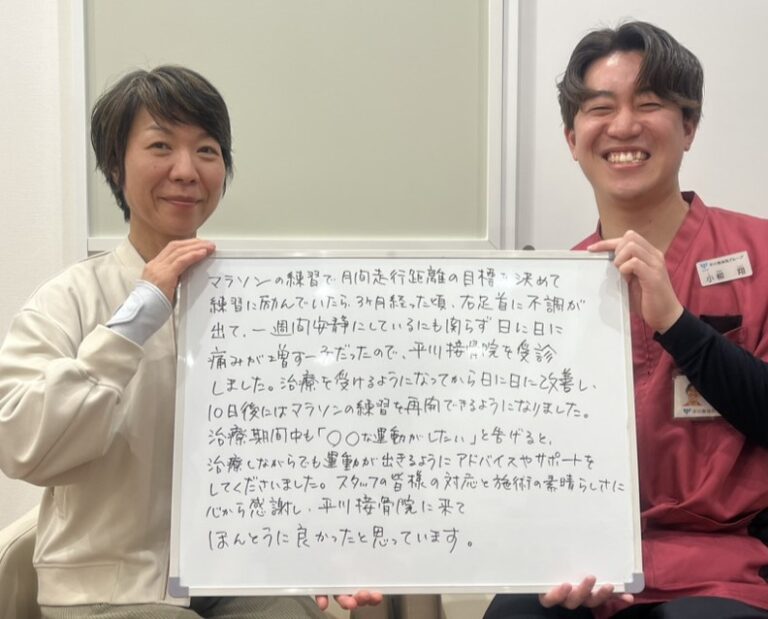 マラソンの練習で月間走行距離の目標を決めて
練習に励んでいたら、3ヶ月経った頃、右足首に不調が
出て、一週間安静にしているにも関らず日に日に
痛みが増す一方だったので、平川接骨院を受診
しました。治療を受けるようになってから日に日に改善し、
10日後にはマラソンの練習を再開できるようになりました。
治療期間中も「〇〇な運動がしたい」と告げると、
治療しながらでも運動が出きるようにアドバイスやサポートを
してくださいました。スタッフの皆様の対応と施術の素晴らしさに
心から感謝し、平川接骨院に来て
ほんとうに良かったと思っています。
平川接骨院グループ
小松 翔